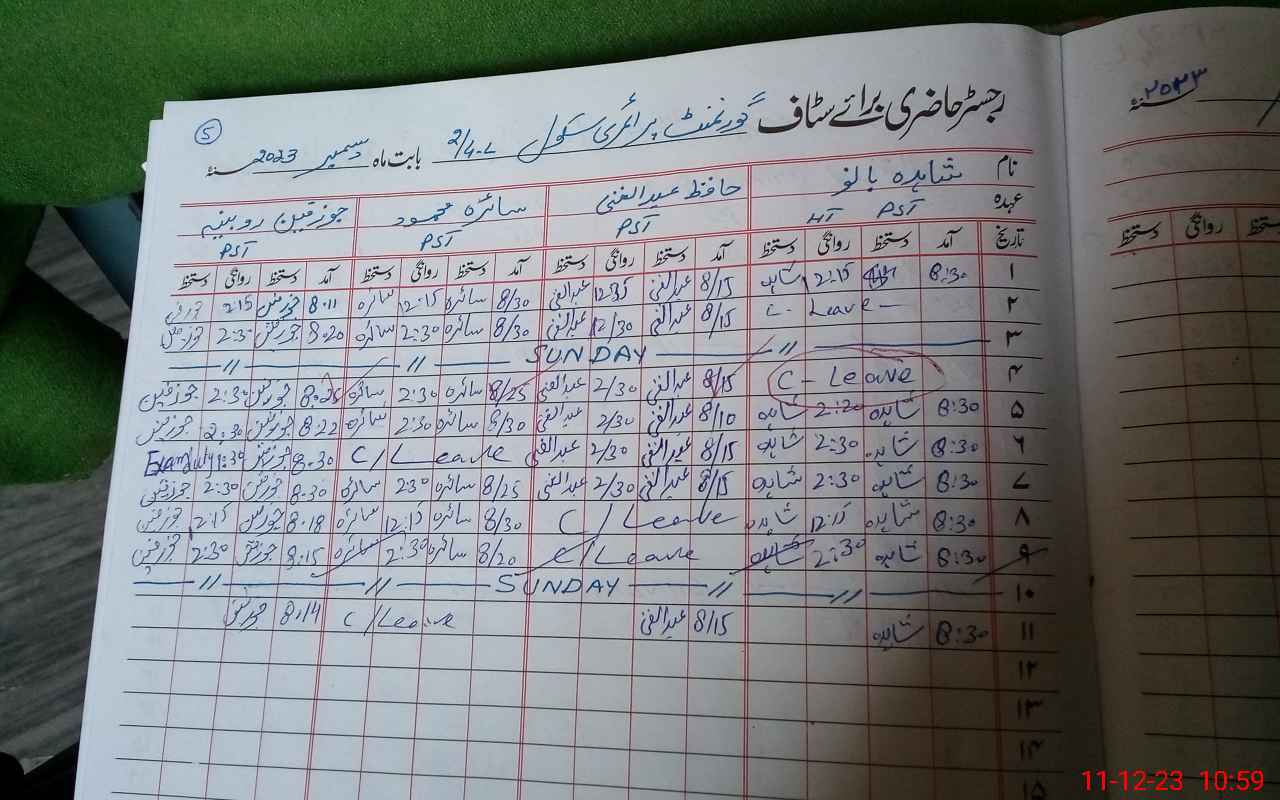 رجسٹر حاضری برائے سٹاف گورنمنٹ پرائمری سکول 2/4-L بابت ماہ دسمبر 2023 سنہ
5
نام شاہدہ بانو حافظ عبدالغنی سائرہ محمود جوزفین روبینہ
عہدہ PST HT PST PST PST
تاریخ آمد دستخط روانگی دستخط آمد دستخط روانگی دستخط آمد دستخط روانگی دستخط آمد دستخط روانگی دستخط
۱ 8:30 12:15 شاہدہ 8/15 عبدالغنی 12:35 عبدالغنی 8/30 سائرہ 12:15 سائرہ 8:11 جوزفین 2:15 جوزفین
۲ C- Leave – 8/15 عبدالغنی 12/30 عبدالغنی 8/30 سائرہ 2:30 سائرہ 8:20 جوزفین 2:30 جوزفین
۳ — // — SUNDAY — // — // —
۴ C – Leave 8/15 عبدالغنی 2/30 عبدالغنی 8/25 سائرہ 2:30 سائرہ 8:25 جوزفین 2:30 جوزفین
۵ 8:30 شاہدہ 2:20 شاہدہ 8/10 عبدالغنی 2/30 عبدالغنی 8/30 سائرہ 2:30 سائرہ 8:22 جوزفین 2:30 جوزفین
۶ 8:30 شاہدہ 2:30 شاہدہ 8/15 عبدالغنی 2/30 عبدالغنی C/Leave 8:30 جوزفین 9:30 Exam duty
۷ 8:30 شاہدہ 2:30 شاہدہ 8/15 عبدالغنی 2/30 عبدالغنی 8/25 سائرہ 2:30 سائرہ 8:30 جوزفین 2:30 جوزفین
۸ 8:30 شاہدہ 12:15 شاہدہ C/Leave 8/30 سائرہ 12:15 سائرہ 8:18 جوزفین 12:15 جوزفین
۹ 8:30 شاہدہ 2:30 شاہدہ C/Leave 8/20 سائرہ 2:30 سائرہ 8:15 جوزفین 2:30 جوزفین
۱۰ — // — SUNDAY — // — // — // —
۱۱ 8:30 شاہدہ 8/15 عبدالغنی C/Leave 8:14 جوزفین
۱۲
۱۳
۱۴
۱۵
۲۰۲۳ سنہ
دستخط روانگی دستخط
11-12-23 10:59